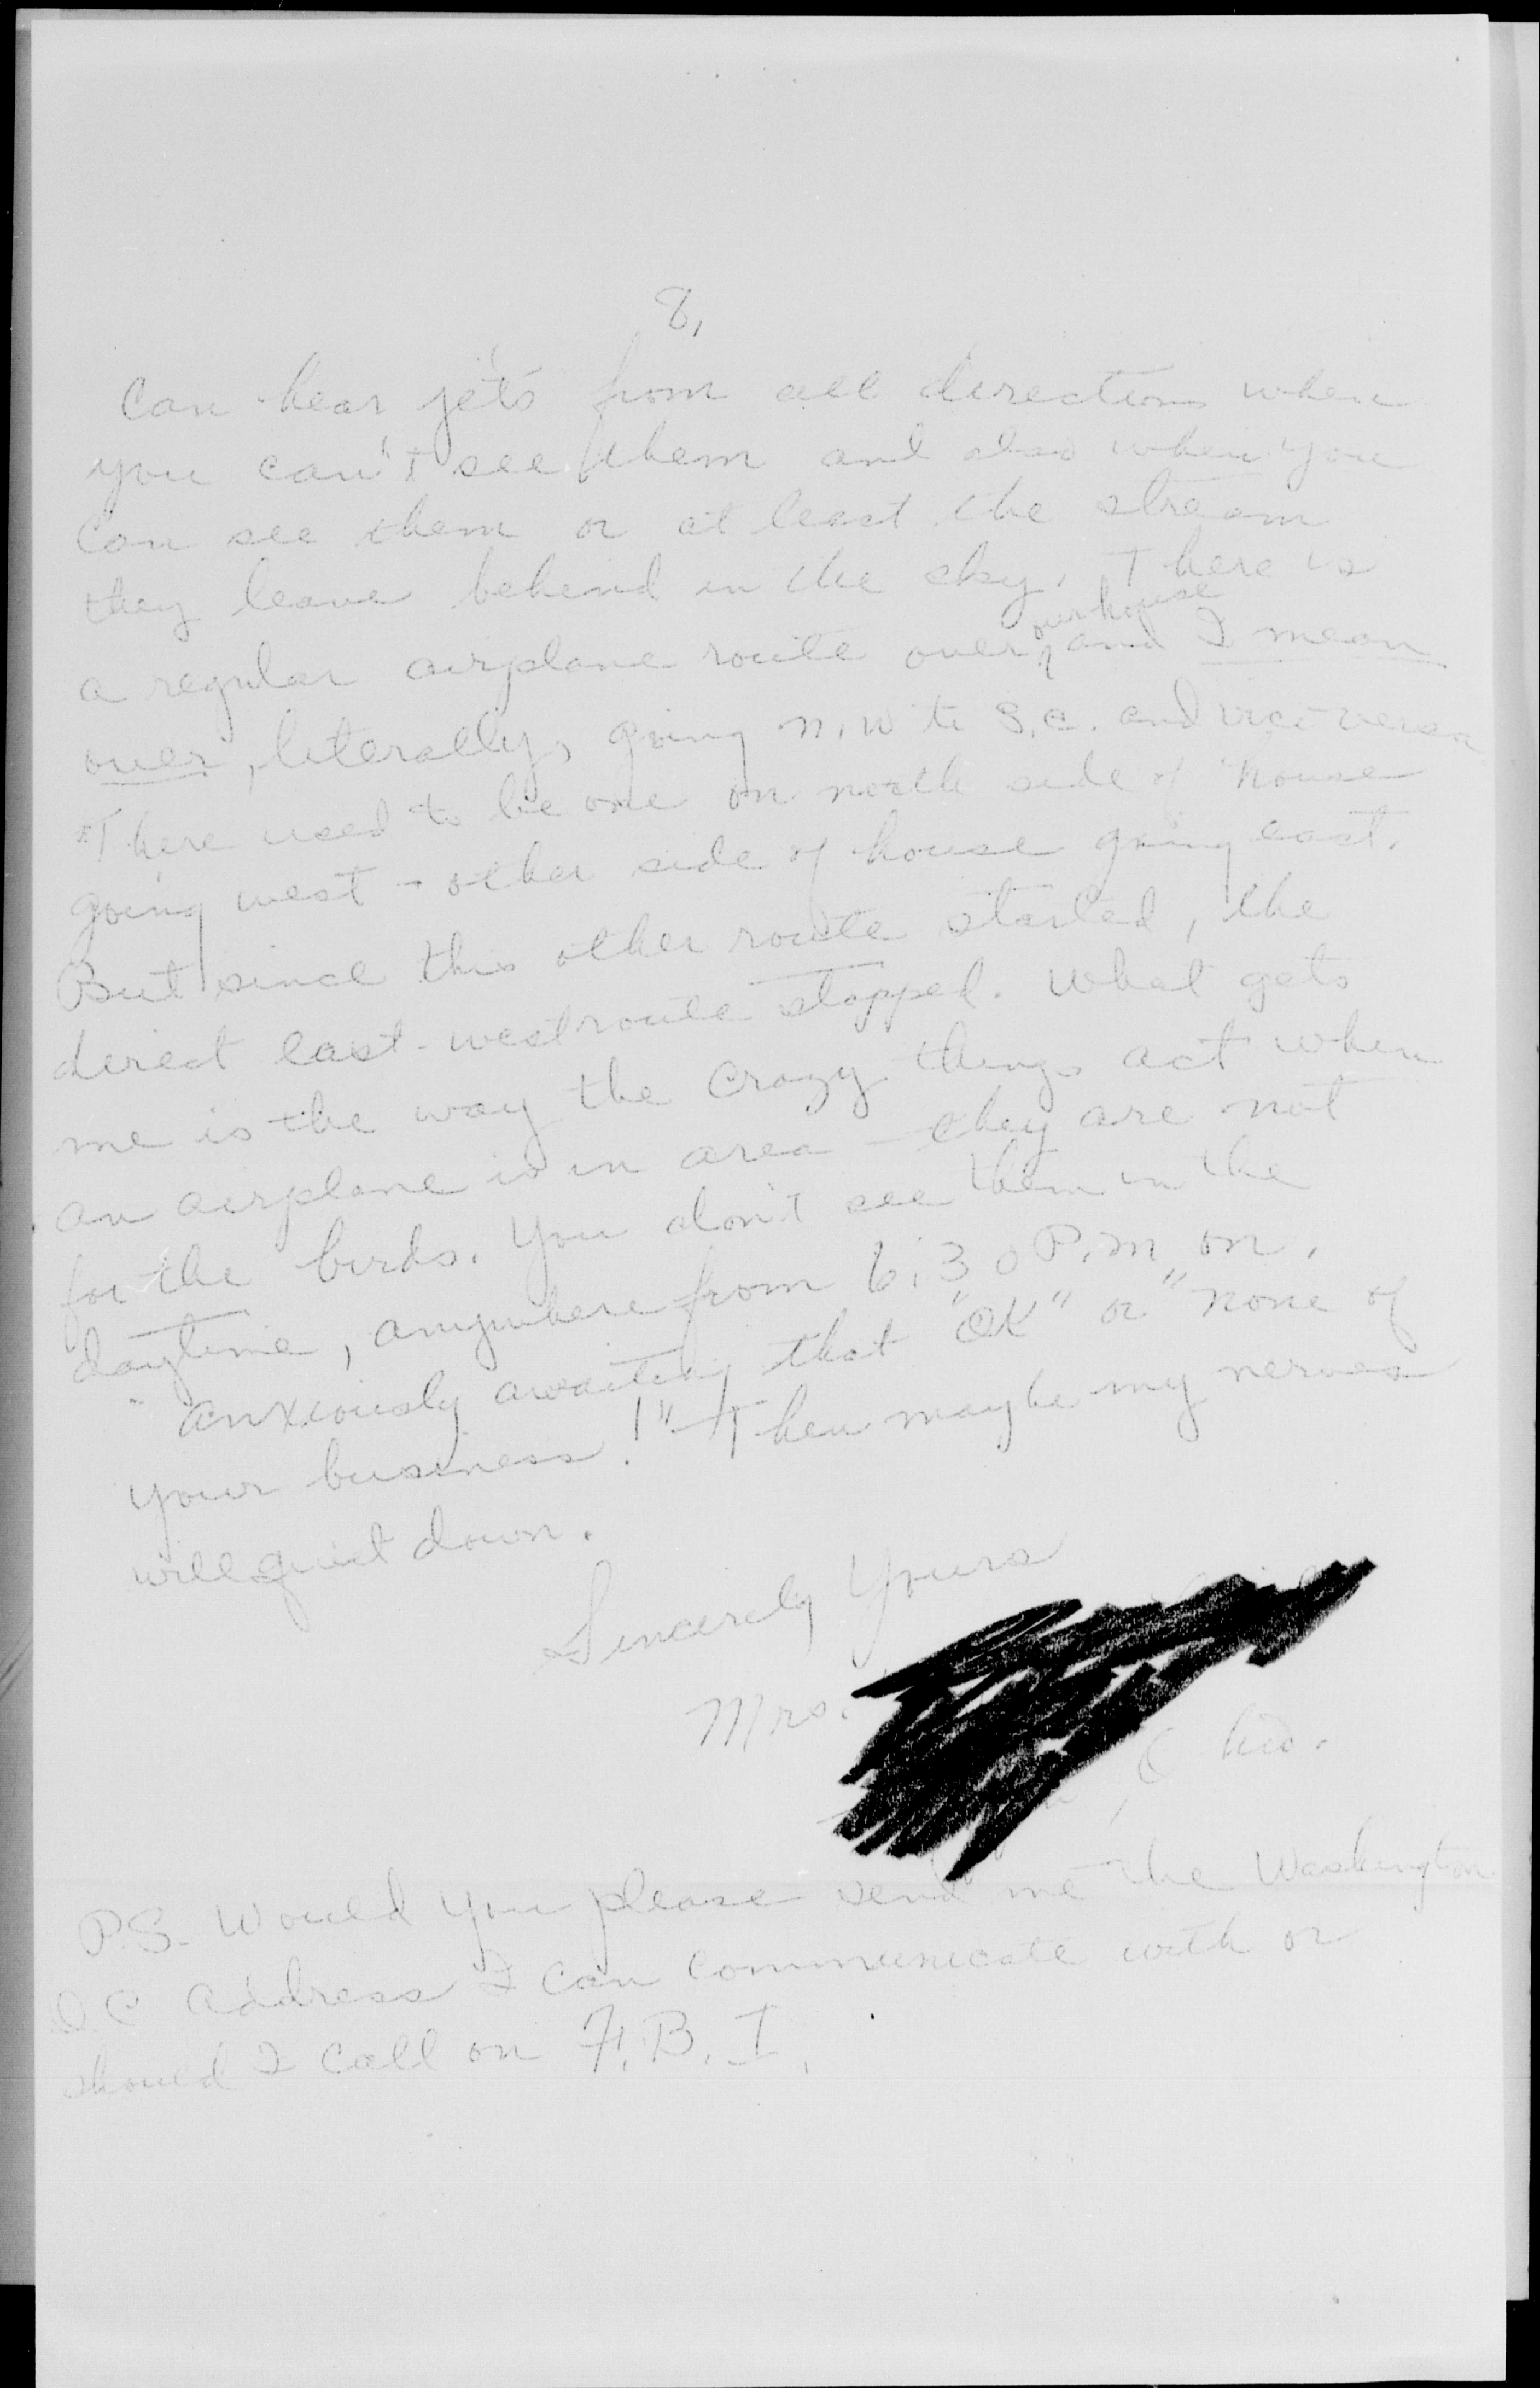 8.
Can hear jets from all directions when
you can't see them and also when you
can see them or at least the stream
they leave behind in the sky. There is
our house
a regular airplane route over and I mean
over, literally, going N.W to S.E. and vice versa
There used to be one on north side of house
going west - other side of house going east.
But since this other route started, the
direct east-west route stopped. What gets
me is the way the crazy things act when
an airplane is in area - they are not
for the birds. You don't see them in the
daytime, anywhere from 6:30 P.M on.
"Anxiously awaiting that "OK" or "none of
your business!" Then maybe my nerves
will quiet down.
Sincerely Yours
Mrs.
, Ohio.
P.S. Would you please send me the Washington
D.C address I can communicate with or
should I call on F.B.I.